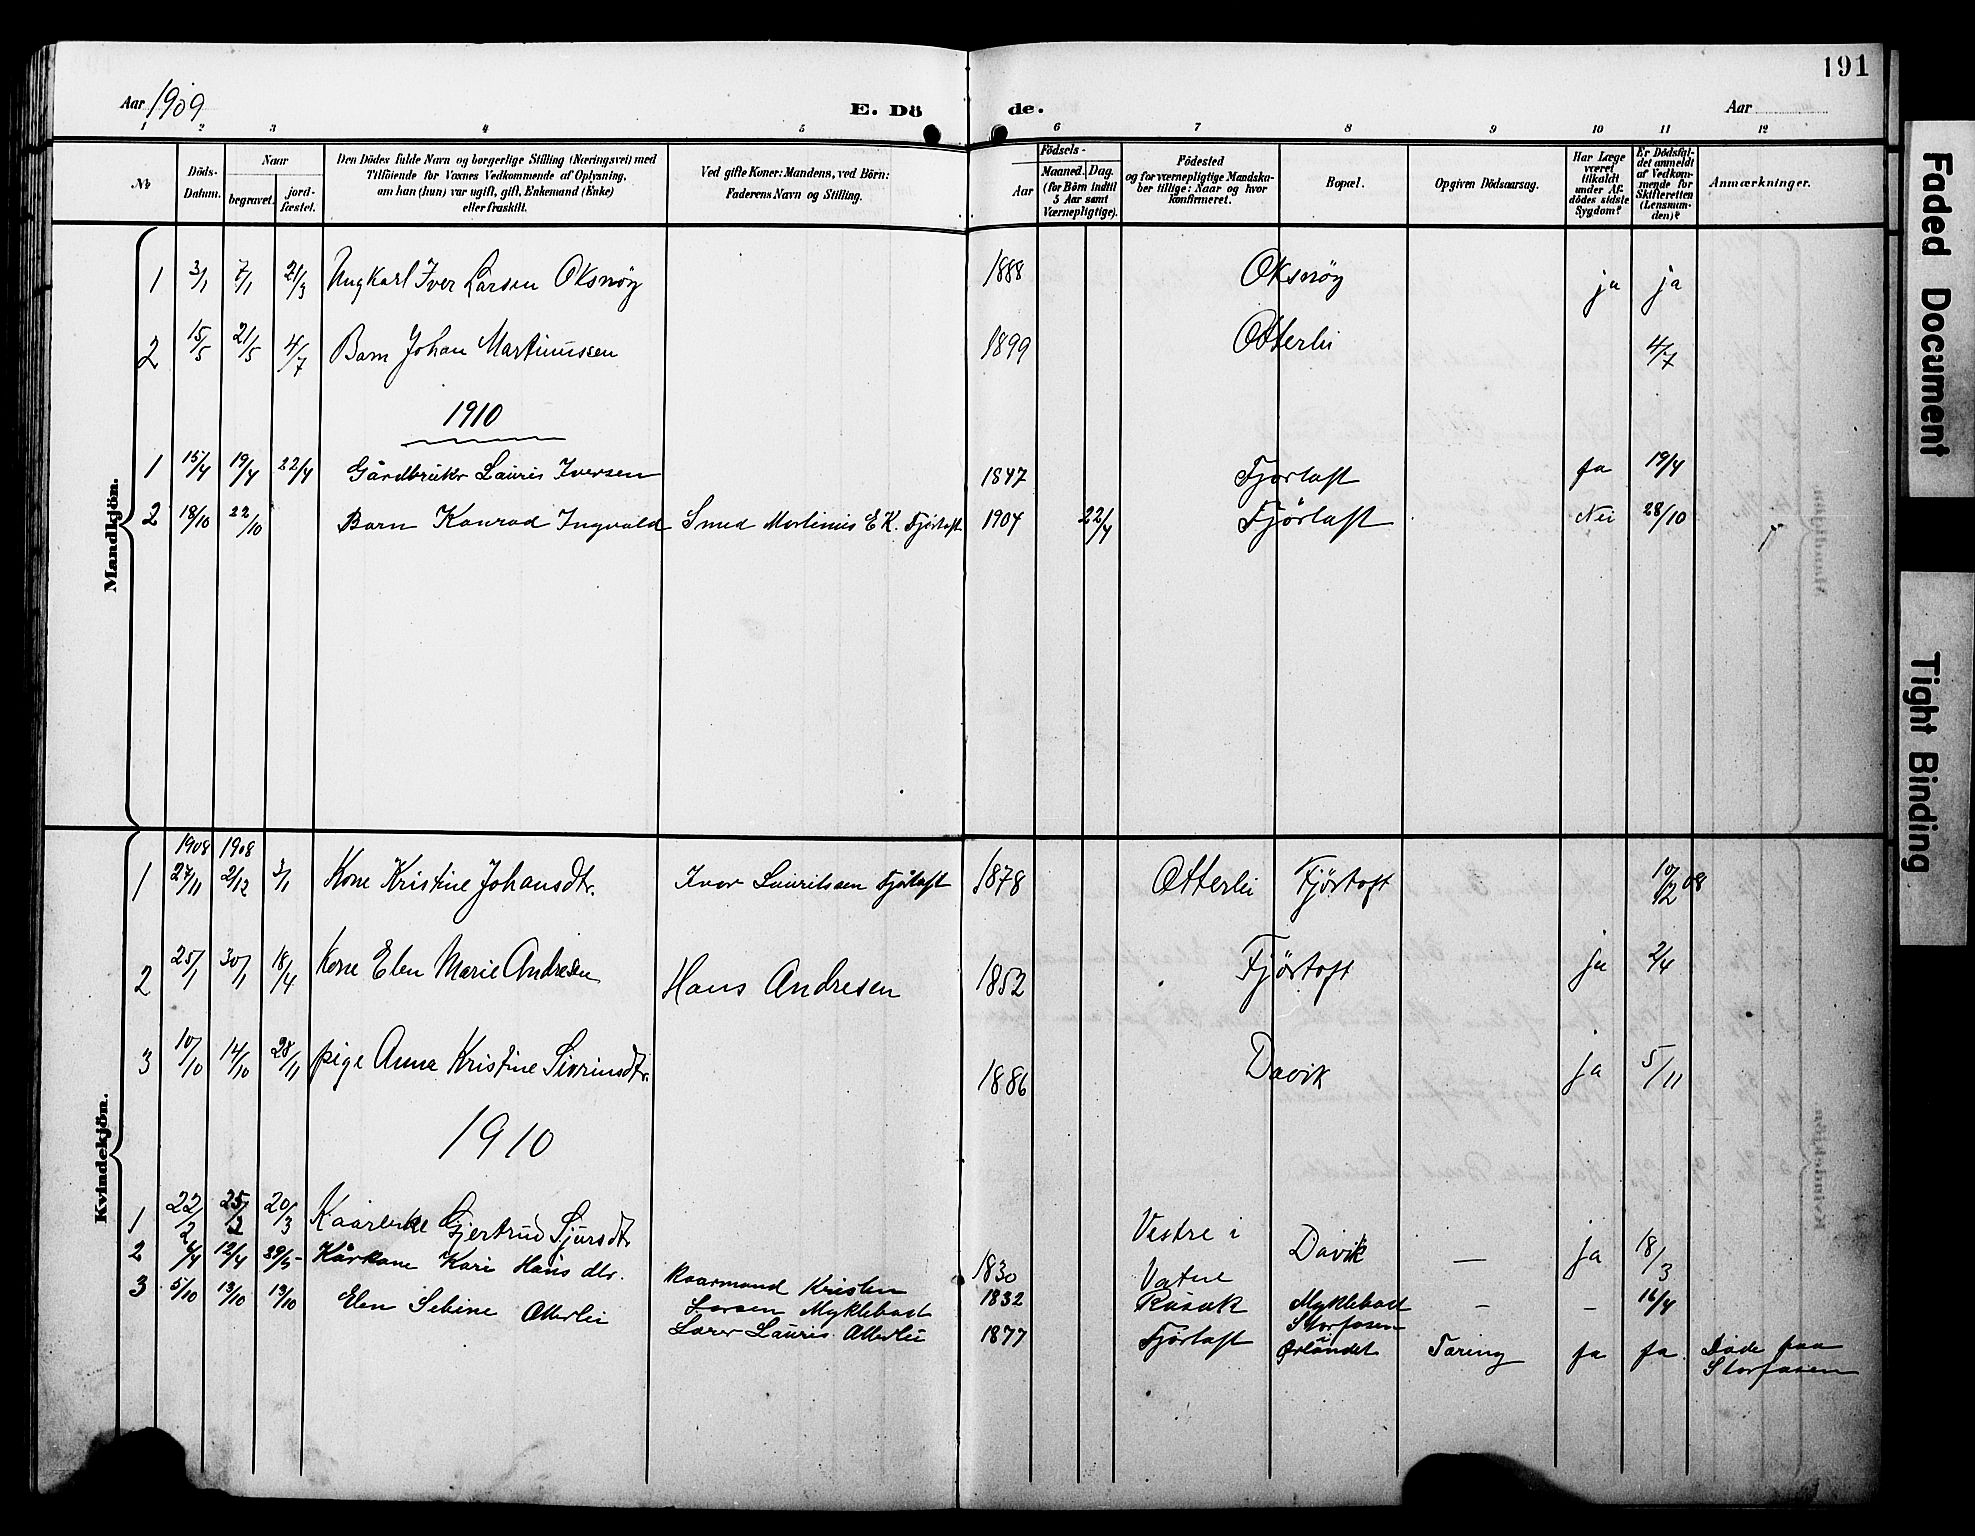 191
Aar 1909
E. Dö de.
Aar
1 2 3 4 5 6 7 8 9 10 11 12
No
Döds-Datum.
Naar
begravet.
jord-fæstet.
Den Dödes fulde Navn og borgerlige Stilling (Næringsvei) med
Tilföiende for Voxnes Vedkommende af Oplysning,
om han (hun) var ugift, gift, Enkemand (Enke)
eller fraskilt.
Ved gifte Koner: Mandens, ved Börn:
Faderens Navn og Stilling.
Födsels-
Aar
Maaned. Dag.
(for Börn indtil
5 Aar samt
Værnepligtige).
Födested
og for værnepligtige Mandska-
ber tillige: Naar og hvor
konfirmeret.
Bopæl.
Opgiven Dödsaarsag.
Har Læge
været
tilkaldt
under Af-
dödes sidste
Sygdom?
Er Dödsfal-
det anmeldt
af Vedkom-
mende for
Skifteretten
(Lensman-
den)?
Anmærkninger.
Mandkjön.
1 3/1 7/1 21/3 Ungkarl Iver Larsen Oksnöy 1888 Oksnöy ja ja
2 15/5 21/5 4/7 Barn Johan Martinussen 1899 Otterlei 4/7
1910
1 15/4 19/4 22/4 Gårdbruker Lauris Iversen 1847 Fjørtoft ja 19/4
2 18/10 22/10 Barn Konrad Ingvald Smed Martinus E K. Fjørtoft 1904 22/4 Fjørtoft Nei 28/10
Kvindekjön.
1908 1908
1 27/11 2/12 3/1 Kone Kristine Johansdtr. Iver Lauritsen Fjørtoft 1878 Otterlei Fjørtoft 10/12 08
2 25/1 30/1 18/4 Kone Elen Marie Andresen Hans Andresen 1852 Fjørtoft ja 2/4
3 10/10 14/10 28/11 pige Anna Kristine Sivrinsdtr. 1886 Davik ja 5/11
1910
1 22/2 25/2 20/3 Kaarenke Gjertrud Sjursdtr 1830 Vestre i Vatne Davik — ja 18/3
2 6/4 12/4 29/5 Kårkone Kari Hans dtr. Kaarmand Kristen Larsen Myklebost 1832 Myklebost – – 16/4
3 5/10 13/10 13/10 Elen Sebine Otterlei Lærer Lauris Otterlei 1877 Fjørtoft Storfosen Ørlandet Tæring ja ja Døde paa Storfosen
Faded Document
Tight Binding